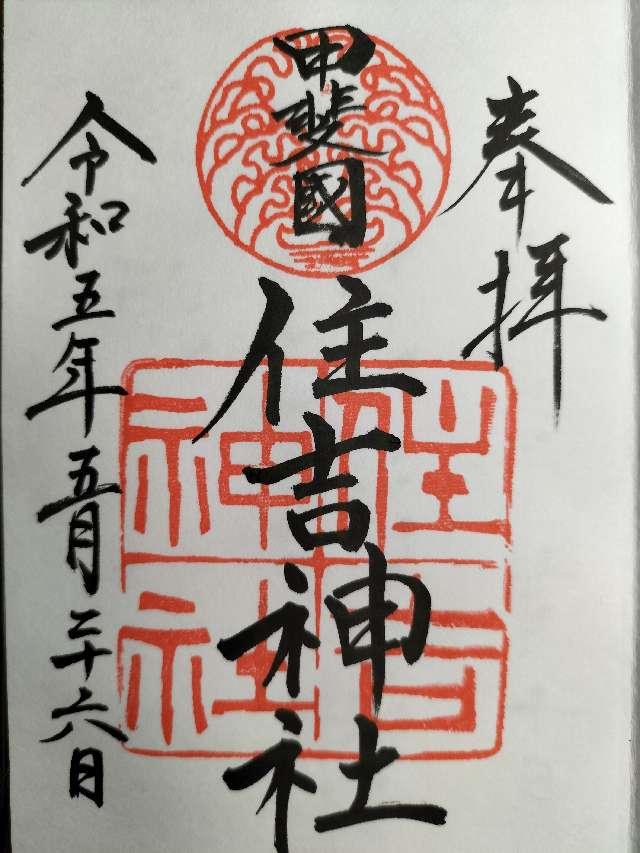 奉拝
甲斐國
住吉神社
住吉
神社
令和五年五月二十六日